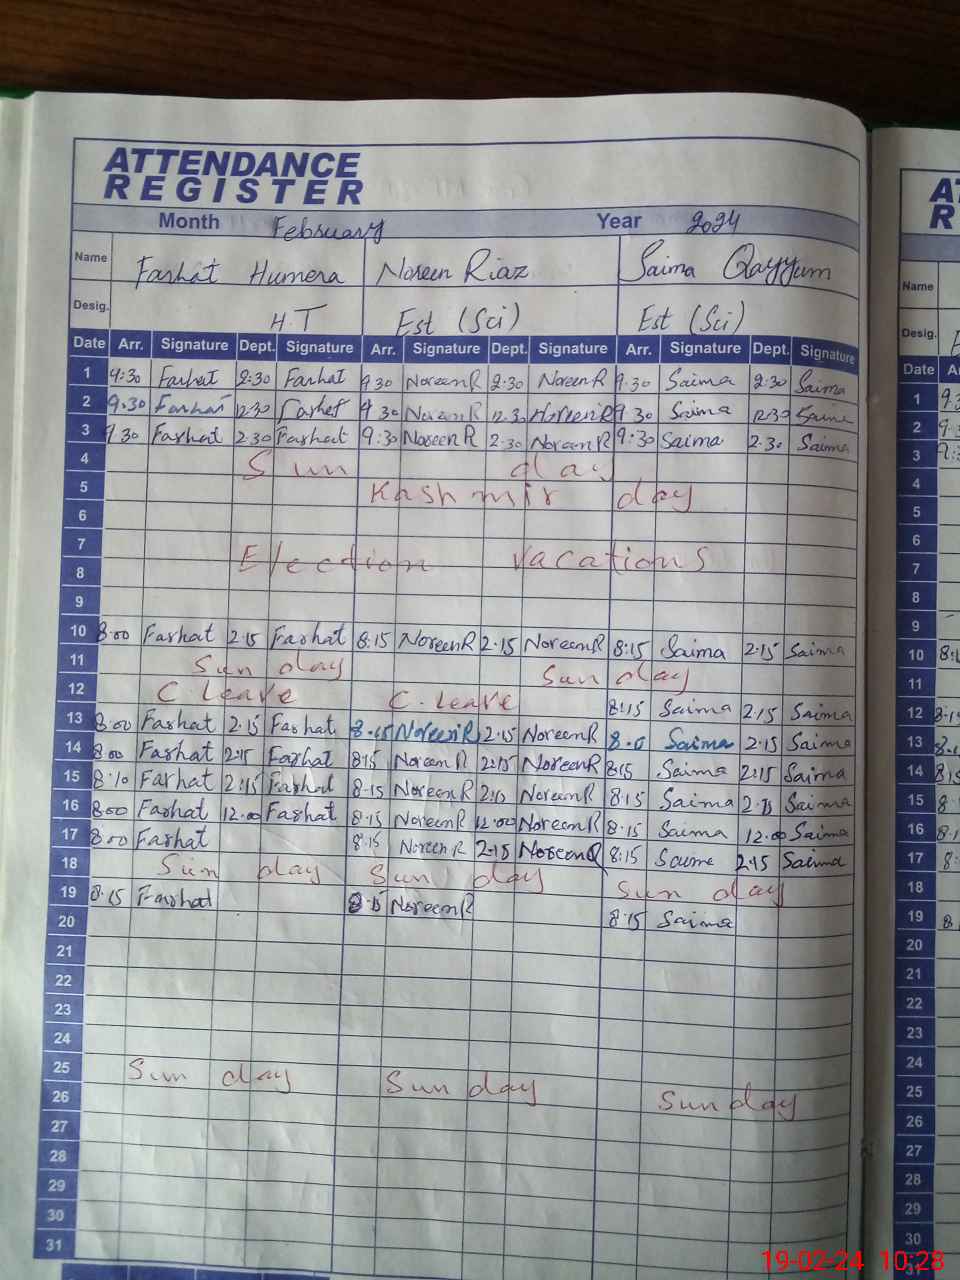 ATTENDANCE
REGISTER
Month February Year 2024
Name Farhat Humera Noreen Riaz Saima Qayyum
Desig. H.T Est (Sci) Est (Sci)
Date Arr. Signature Dept. Signature Arr. Signature Dept. Signature Arr. Signature Dept. Signature
1 9:30 Farhat 2:30 Farhat 9 30 NoreenR 2:30 NoreenR 9.30 Saima 2:30 Saima
2 9.30 Farhat 12.30 Farhat 9 30 NoreenR 12.30 NoreenR 9 30 Saima 12:30 Saima
3 9.30 Farhat 2.30 Farhat 9:30 NoreenR 2:30 NoreenR 9:30 Saima 2.30 Saima
4 Sun day
5 Kashmir day
6
7 Election vacations
8
9
10 8:00 Farhat 2.15 Farhat 8:15 NoreenR 2.15 NoreenR 8:15 Saima 2.15 Saima
11 Sun day Sun day
12 C. Leave C. Leave 8:15 Saima 2.15 Saima
13 8:00 Farhat 2.15 Farhat 8.15 NoreenR 2.15 NoreenR Saima 2.15 Saima
14 8:00 Farhat 2.15 Farhat 8:15 NoreenR 2:15 NoreenR 8:15 Saima 2:15 Saima
15 8:10 Farhat 2:15 Farhat 8.15 NoreenR NoreenR 8:15 Saima Saima
16 8:00 Farhat 12.00 Farhat 8.15 NoreenR 12:00 NoreenR 8.15 Saima 12.00 Saima
17 8:00 Farhat 8:15 NoreenR 2.15 NoreenR 8:15 Saima 2.15 Saima
18 Sun day Sun day Sun day
19 8.15 Farhat 8.15 NoreenR 8.15 Saima
20
21
22
23
24
25 Sun day Sun day Sun day
26
27
28
29
30
31
Name
Desig.
Date
1
2
3
4
5
6
7
8
9
10
11
12
13
14
15
16
17
18
19
20
21
22
23
24
25
26
27
28
29
30
19-02-24 10:28